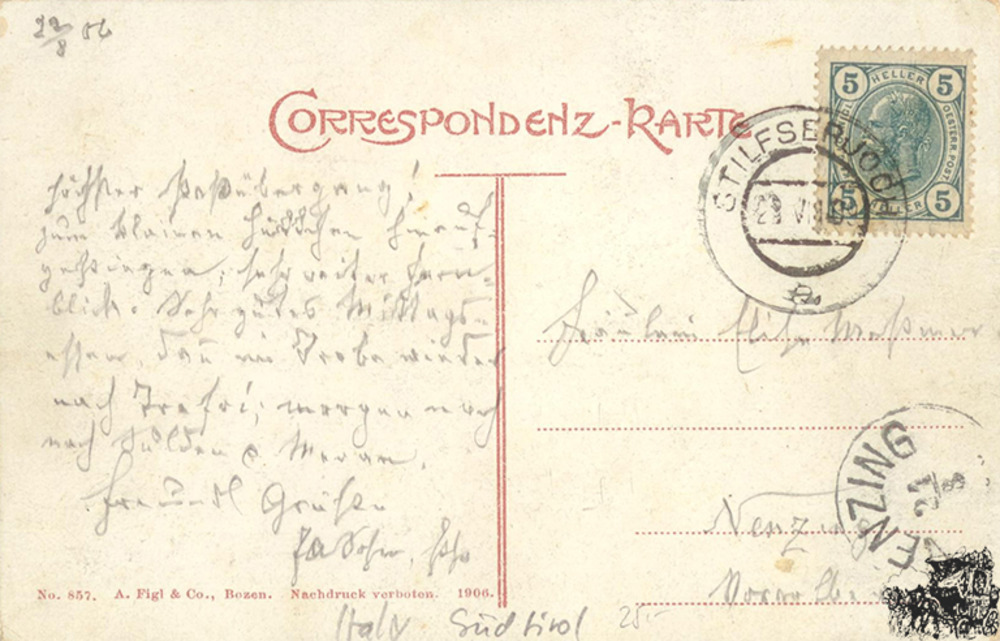 22/8 06
CORRESPONDENZ-KARTE
5 HELLER 5
OESTERR. POST
5 HELLER 5
STILFSERJOCH
höchster Paßübergang!
zum kleinen Hüttchen hinauf-
gestiegen, sehr weiter Fern-
blick. Sehr gutes Mittags-
essen, dann wieder
nach Trafoi, morgen noch
nach Sulden Meran.
Freundl Grüße
Fräulein Elise Meßmer
NENZING
21/8
Nenzing
Vorarlberg
No. 857. A. Figl & Co., Bozen. Nachdruck verboten. 1906.
Italy Südtirol 25.-